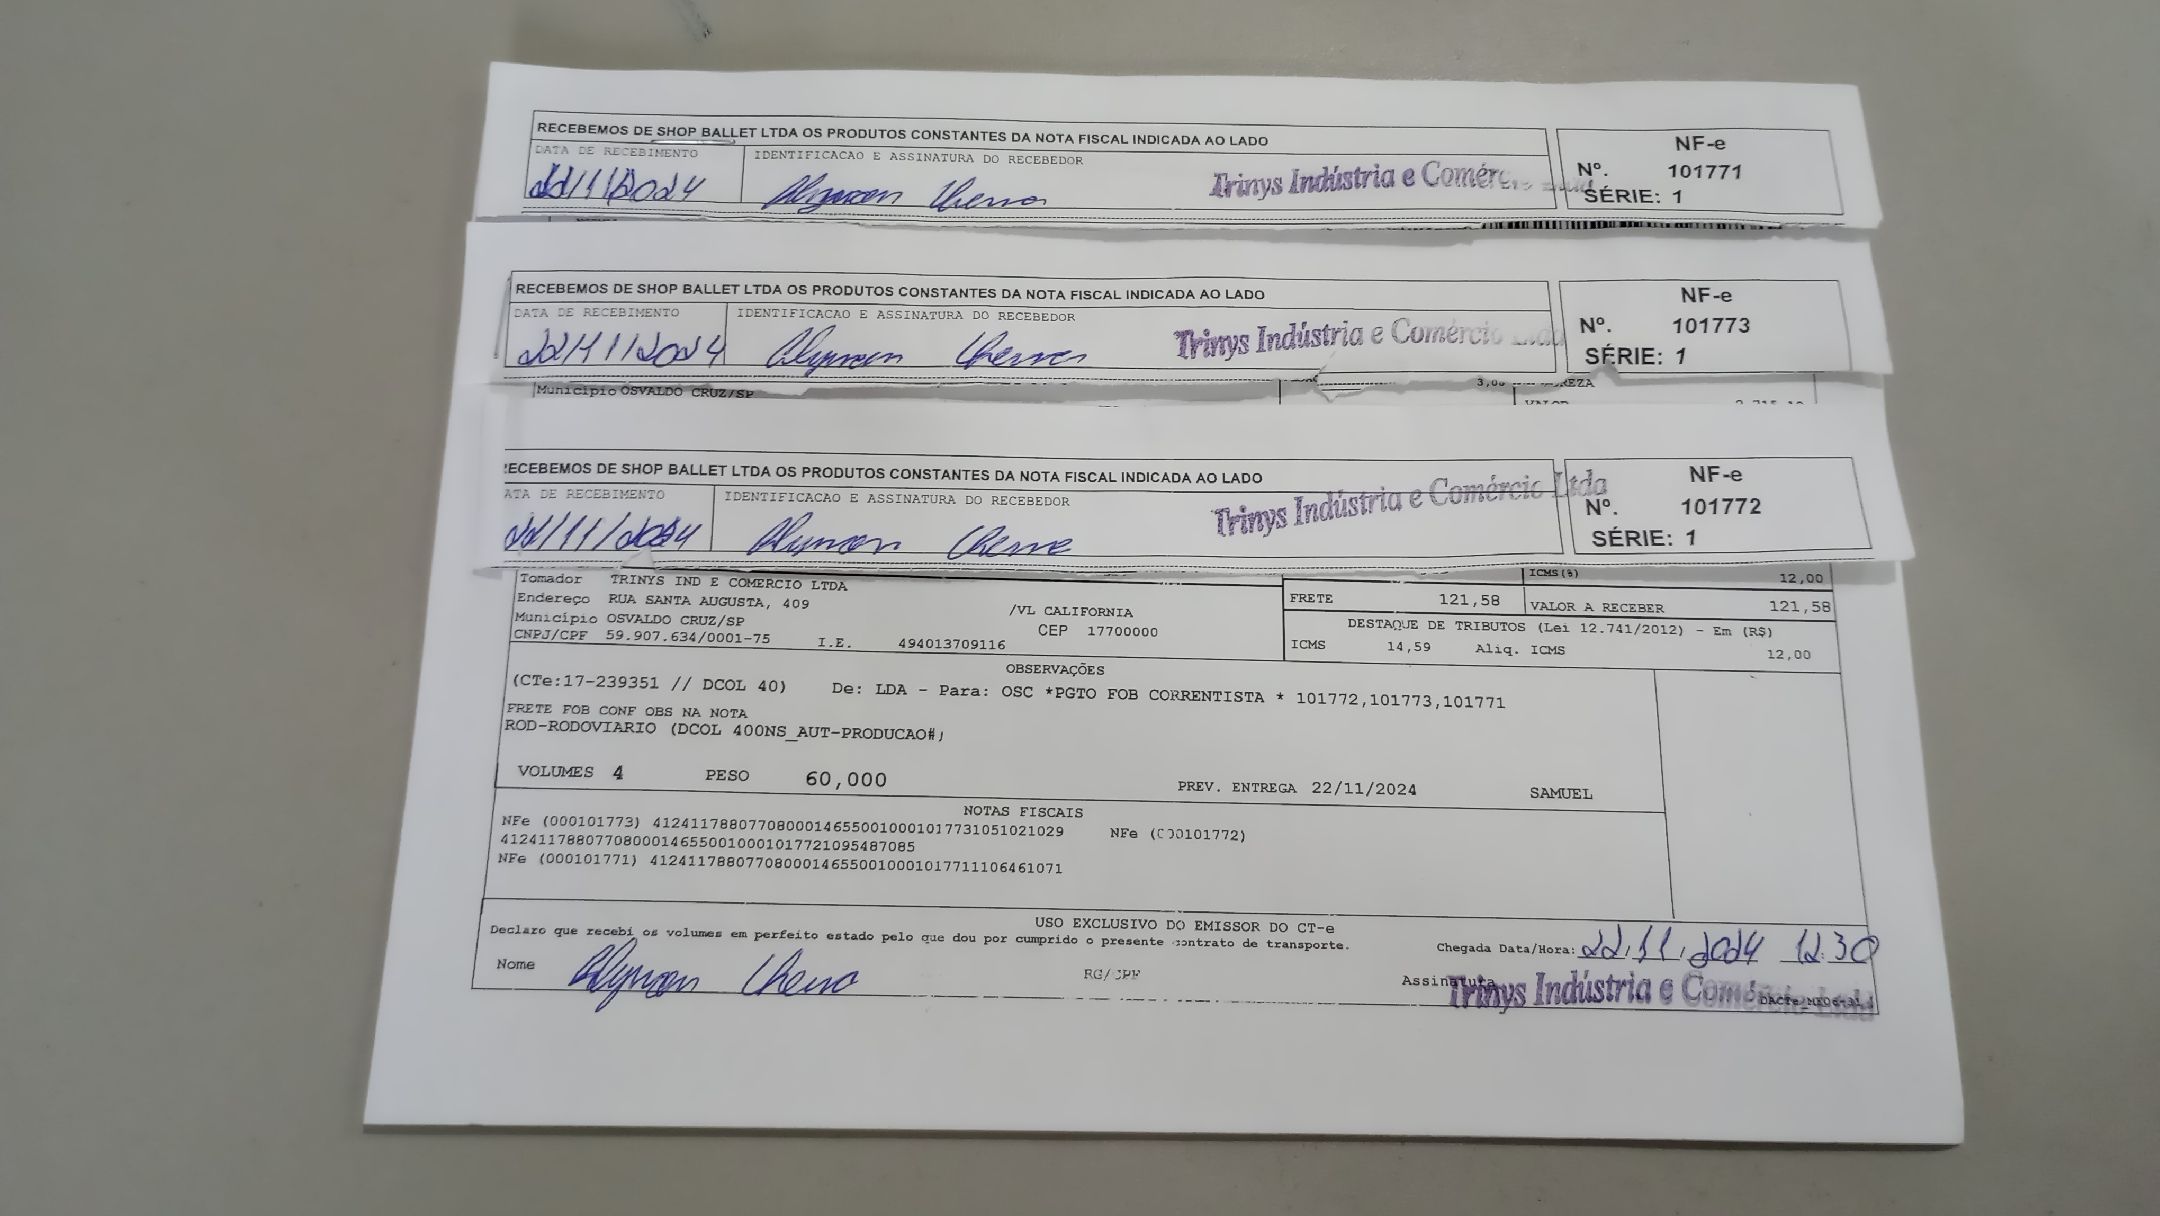 RECEBEMOS DE SHOP BALLET LTDA OS PRODUTOS CONSTANTES DA NOTA FISCAL INDICADA AO LADO
NF-e
DATA DE RECEBIMENTO IDENTIFICACAO E ASSINATURA DO RECEBEDOR
Nº. 101771
22/11/2024 Trinys Indústria e Comérc
SÉRIE: 1
RECEBEMOS DE SHOP BALLET LTDA OS PRODUTOS CONSTANTES DA NOTA FISCAL INDICADA AO LADO
NF-e
DATA DE RECEBIMENTO IDENTIFICACAO E ASSINATURA DO RECEBEDOR
Nº. 101773
22/11/2024 Trinys Indústria e Comércio
SÉRIE: 1
Município OSVALDO CRUZ/SP
ECEBEMOS DE SHOP BALLET LTDA OS PRODUTOS CONSTANTES DA NOTA FISCAL INDICADA AO LADO
NF-e
ATA DE RECEBIMENTO IDENTIFICACAO E ASSINATURA DO RECEBEDOR
Nº. 101772
22/11/2024 Trinys Indústria e Comércio Ltda
SÉRIE: 1
Tomador TRINYS IND E COMERCIO LTDA ICMS(%) 12,00
Endereço RUA SANTA AUGUSTA, 409 /VL CALIFORNIA FRETE 121,58 VALOR A RECEBER 121,58
Município OSVALDO CRUZ/SP CEP 17700000 DESTAQUE DE TRIBUTOS (Lei 12.741/2012) - Em (R$)
CNPJ/CPF 59.907.634/0001-75 I.E. 494013709116 ICMS 14,59 Aliq. ICMS 12,00
OBSERVAÇÕES
(CTe:17-239351 // DCOL 40) De: LDA - Para: OSC *PGTO FOB CORRENTISTA * 101772,101773,101771
FRETE FOB CONF OBS NA NOTA
ROD-RODOVIARIO (DCOL 400NS_AUT-PRODUCAO#)
VOLUMES 4 PESO 60,000 PREV. ENTREGA 22/11/2024 SAMUEL
NOTAS FISCAIS
NFe (000101773) 41241178807708000146550010001017731051021029 NFe (000101772)
41241178807708000146550010001017721095487085
NFe (000101771) 41241178807708000146550010001017711106461071
USO EXCLUSIVO DO EMISSOR DO CT-e
Declaro que recebi os volumes em perfeito estado pelo que dou por cumprido o presente contrato de transporte. Chegada Data/Hora: 22.11.2024 12:30
Nome RG/CPF Assinatura Trinys Indústria e Comércio Ltda